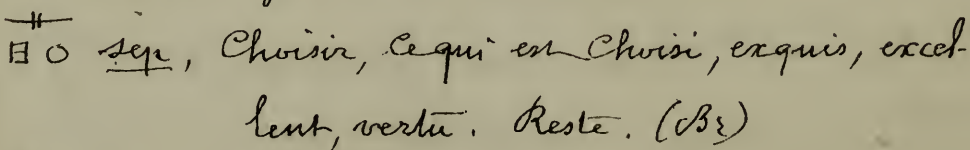 sep, Choisir, Ce qui est Choisi, exquis, excel-
lent, vertu. Reste. (Br)